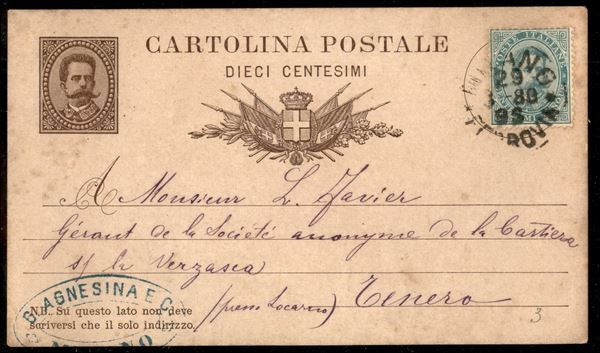 CARTOLINA POSTALE
DIECI CENTESIMI
POSTE ITALIANE
29
89
A Monsieur L. Favier
Gérant de la Société anonyme de la Cartiera
s/ la Verzasca
(presso Locarno) Tenero
G. AGNESINA E C.
N.B. Su questo lato non deve
scriversi che il solo indirizzo.
3